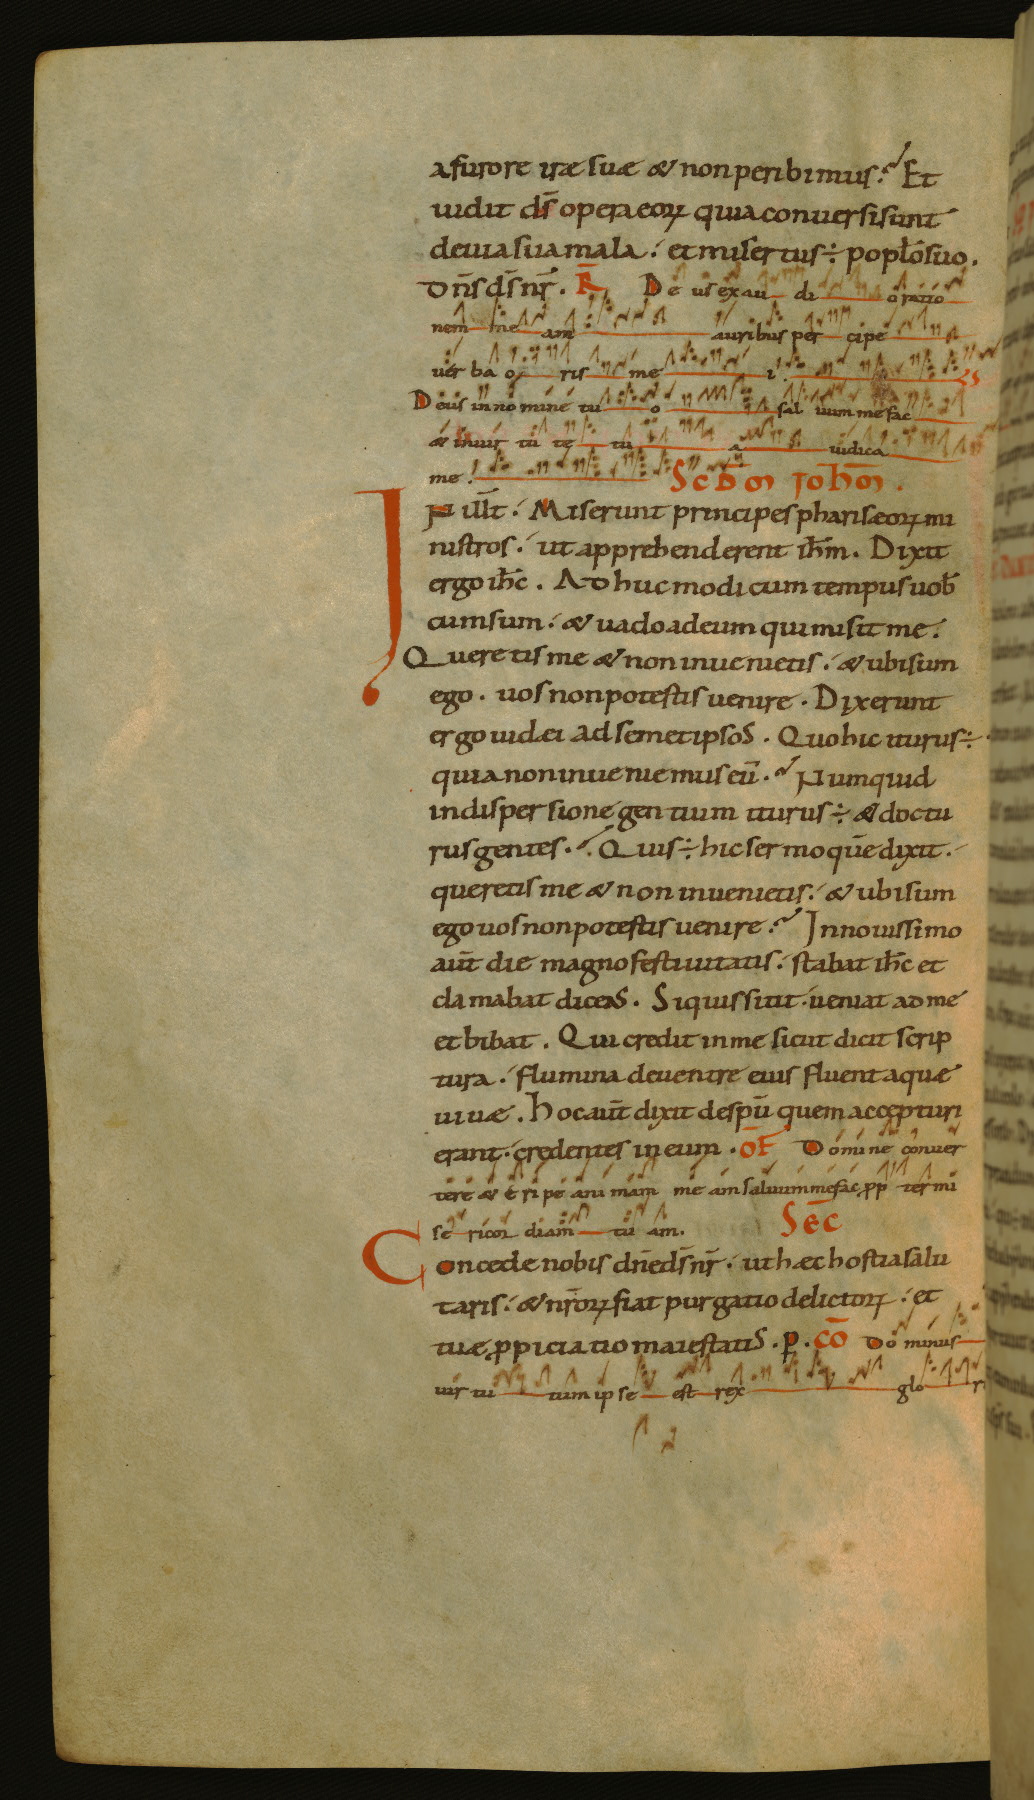 a furore iræ suæ & non peribimus. Et
uidit d̄s opera eoꝝ quia conuersi sunt
de uia sua mala. et misertus ÷ popl̄o suo.
Dn̄s d̄s nr̄. R̄ Deus exaudi oratio
nem meam auribus percipe
uerba oris mei. V̄S
Deus in nomine tuo saluum me fac
& in uirtute tua iudica
me. SCD̄M IOH̄M.
IN ill̄t. Miserunt principes pharisæoꝝ mi
nistros. ut apprehenderent ih̄m. Dixit
ergo ih̄c. Adhuc modicum tempus uob̄
cum sum. & uado ad eum qui misit me.
Queretis me & non inuenietis. & ubi sum
ego. uos non potestis uenire. Dixerunt
ergo iudæi ad semetipsos. Quo hic iturus ÷
quia non inueniemus eū. Numquid
in dispersione gentium iturus ÷ & doctu
rus gentes. Quis ÷ hic sermo quē dixit.
queretis me & non inuenietis. & ubi sum
ego uos non potestis uenire. In nouissimo
aūt die magno festiuitatis. stabat ih̄c et
clamabat dicens. Si quis sitit. ueniat ad me
et bibat. Qui credit in me sicut dicit scrip
tura. flumina de uentre eius fluent aquæ
uiuæ. hoc aūt dixit de sp̄u quem accepturi
erant. credentes in eum. OF̄ Domine conuer
tere & eripe animam meam saluum me fac ꝓp̄ ter mi
sericordiam tuam. SEC̄
Concede nobis dn̄e d̄s nr̄. ut hæc hostia salu
taris. & nr̄oꝝ fiat purgatio delictoꝝ. et
tuæ ꝓpiciatio maiestatis. p̱. CŌ Dominus
uirtutum ipse est rex glori